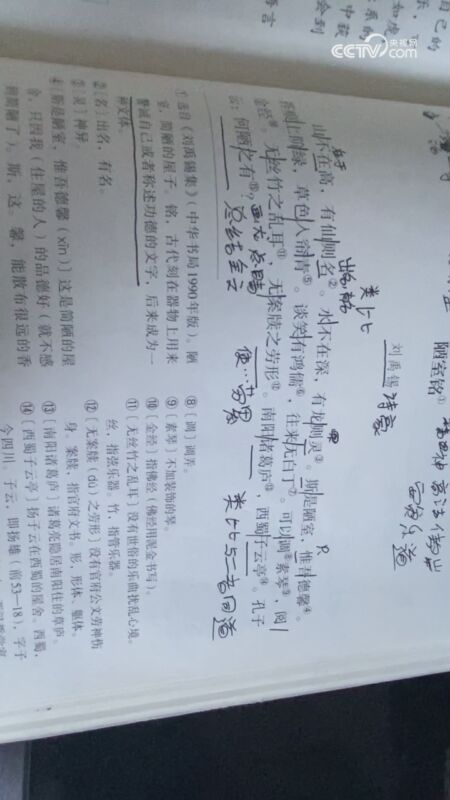 央视网
CCTV.com
陋室铭①
刘禹锡 诗豪
类比
出名
山不在高，有仙则名②。水不在深，有龙则灵③。斯是陋室，惟吾德馨④。
苔痕上阶绿，草色入帘青⑤。谈笑有鸿儒⑥，往来无白丁⑦。可以调⑧素琴⑨，阅
金经⑩。无丝竹之乱耳⑪，无案牍之劳形⑫。南阳诸葛庐⑬，西蜀子云亭⑭。孔子
云：何陋之有⑮？
画龙点睛
总结全文
①选自《刘禹锡集》（中华书局1990年版）。陋
室，简陋的屋子。铭，古代刻在器物上用来
警诫自己或者称述功德的文字，后来成为一
种文体。
②〔名〕出名，有名。
③〔灵〕神异。
④〔斯是陋室，惟吾德馨（xīn）〕这是简陋的屋
舍，只因我（住屋的人）的品德好（就不感
到简陋了）。斯，这。馨，能散布很远的香
⑧〔调〕调弄。
⑨〔素琴〕不加装饰的琴。
⑩〔金经〕指佛经（佛经用泥金书写）。
⑪〔无丝竹之乱耳〕没有世俗的乐曲扰乱心境。
丝，指弦乐器。竹，指管乐器。
⑫〔无案牍（dú）之劳形〕没有官府公文劳神伤
身。案牍，指官府文书。形，形体、躯体。
⑬〔南阳诸葛庐〕诸葛亮隐居南阳住的草庐。
⑭〔西蜀子云亭〕扬子云在西蜀的屋舍。西蜀，
今四川。子云，即扬雄（前53—18），字子